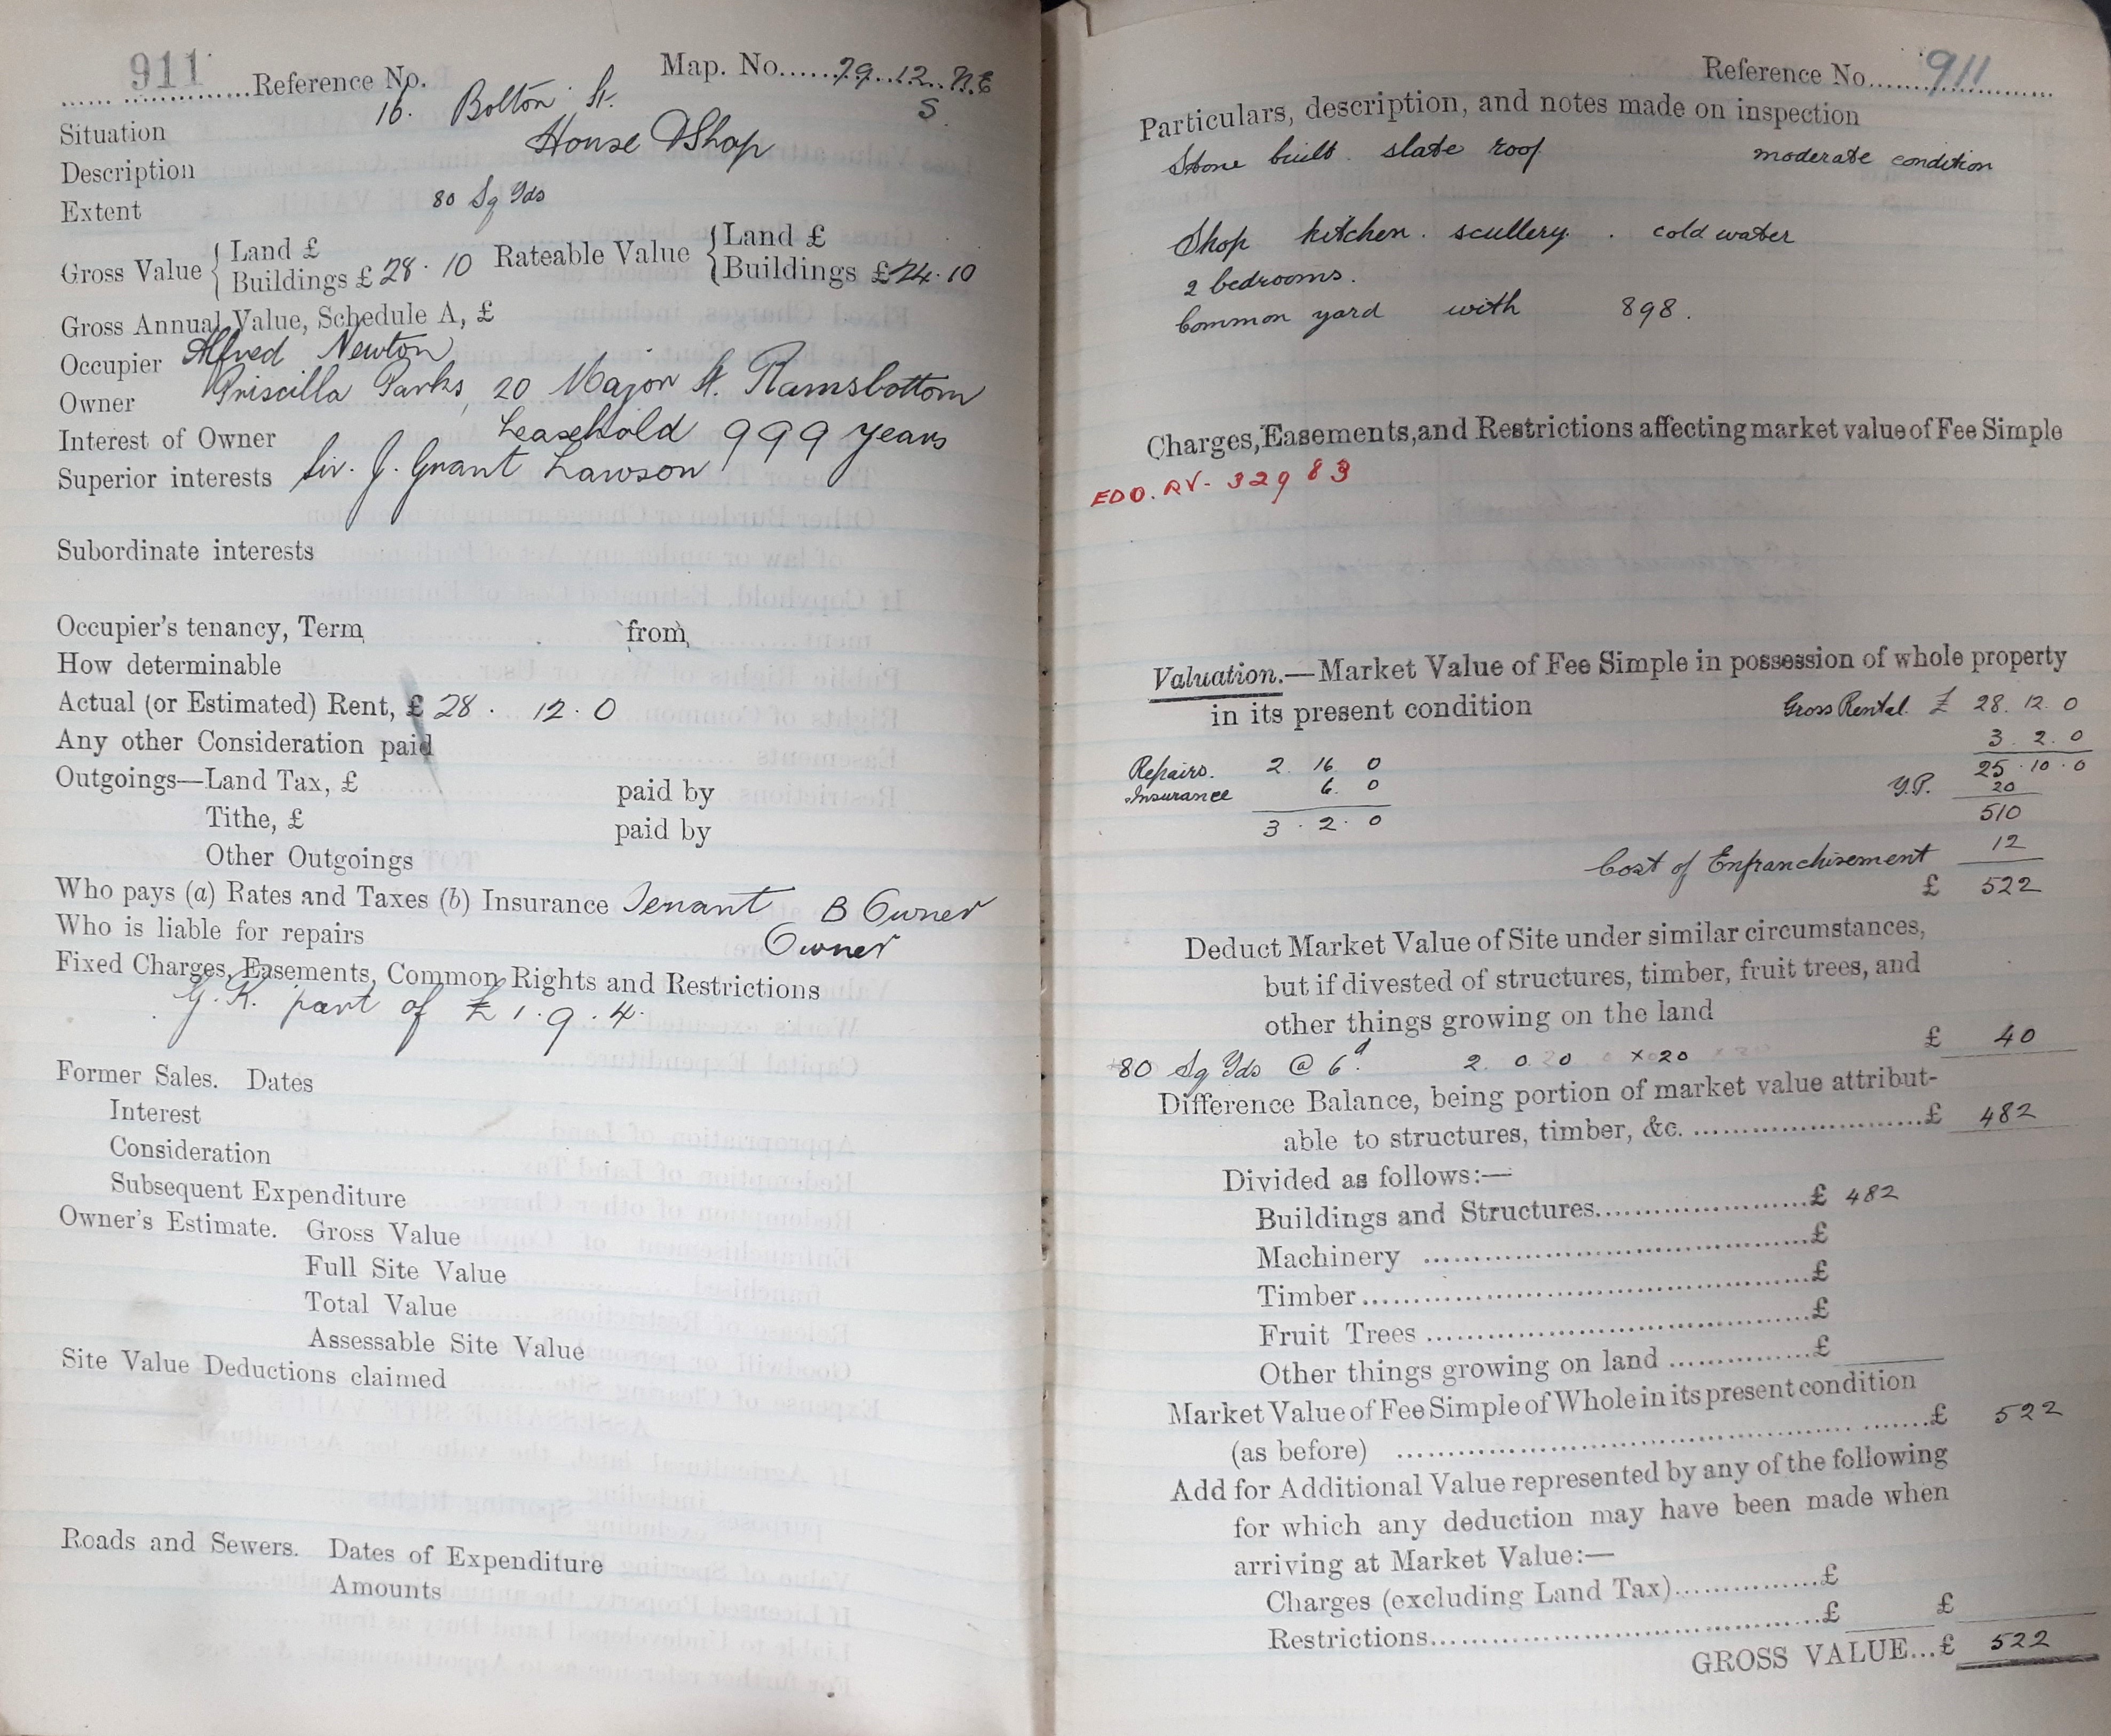 911
Reference No.
Map. No. 79.12. N.E
S.
Situation 16. Bolton St.
Description House & Shop
Extent 80 Sq Yds
Gross Value { Land £
Buildings £ 28 . 10
Rateable Value { Land £
Buildings £24.10
Gross Annual Value, Schedule A, £
Occupier Alfred Newton
Owner Priscilla Parks, 20 Major St. Ramsbottom
Interest of Owner Leasehold 999 years
Superior interests Sir. J. Grant Lawson
Subordinate interests
Occupier's tenancy, Term from
How determinable
Actual (or Estimated) Rent, £ 28 . 12 . 0
Any other Consideration paid
Outgoings—Land Tax, £ paid by
Tithe, £ paid by
Other Outgoings
Who pays (a) Rates and Taxes (b) Insurance Tenant B Owner
Who is liable for repairs Owner
Fixed Charges, Easements, Common Rights and Restrictions
G. R. part of £1.9.4.
Former Sales. Dates
Interest
Consideration
Subsequent Expenditure
Owner's Estimate. Gross Value
Full Site Value
Total Value
Assessable Site Value
Site Value Deductions claimed
Roads and Sewers. Dates of Expenditure
Amounts
Reference No. 911
Particulars, description, and notes made on inspection
Stone built. slate roof moderate condition
Shop kitchen. scullery. . cold water
2 bedrooms.
Common yard with 898.
Charges, Easements, and Restrictions affecting market value of Fee Simple
EDO. RV- 32983
Valuation.—Market Value of Fee Simple in possession of whole property
in its present condition
Gross Rental. £ 28. 12. 0
3. 2. 0
Repairs. 2. 16 0
25 . 10 . 0
Insurance 6. 0
Y.P. 20
3 . 2 . 0
510
Cost of Enfranchisement 12
£ 522
Deduct Market Value of Site under similar circumstances,
but if divested of structures, timber, fruit trees, and
other things growing on the land
£ 40
80 Sq Yds @ 6d. 2. 0. 0 × 20
Difference Balance, being portion of market value attribut-
able to structures, timber, &c. £ 482
Divided as follows:—
Buildings and Structures £ 482
Machinery £
Timber £
Fruit Trees £
Other things growing on land £
Market Value of Fee Simple of Whole in its present condition
(as before) £ 522
Add for Additional Value represented by any of the following
for which any deduction may have been made when
arriving at Market Value:—
Charges (excluding Land Tax) £
Restrictions £ £
GROSS VALUE...£ 522